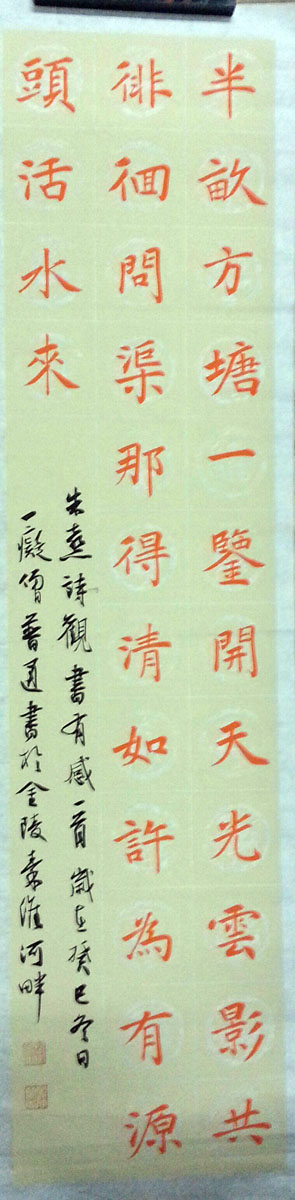 半畝方塘一鑒開天光雲影共
徘徊問渠那得清如許為有源
頭活水來
朱熹詩觀書有感一首歲在癸巳冬日
一癡僧普通書於金陵秦淮河畔